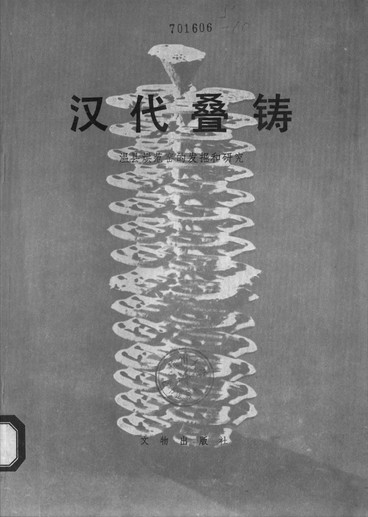 701606
汉代叠铸
温县烘范窑的发掘和研究
文物出版社